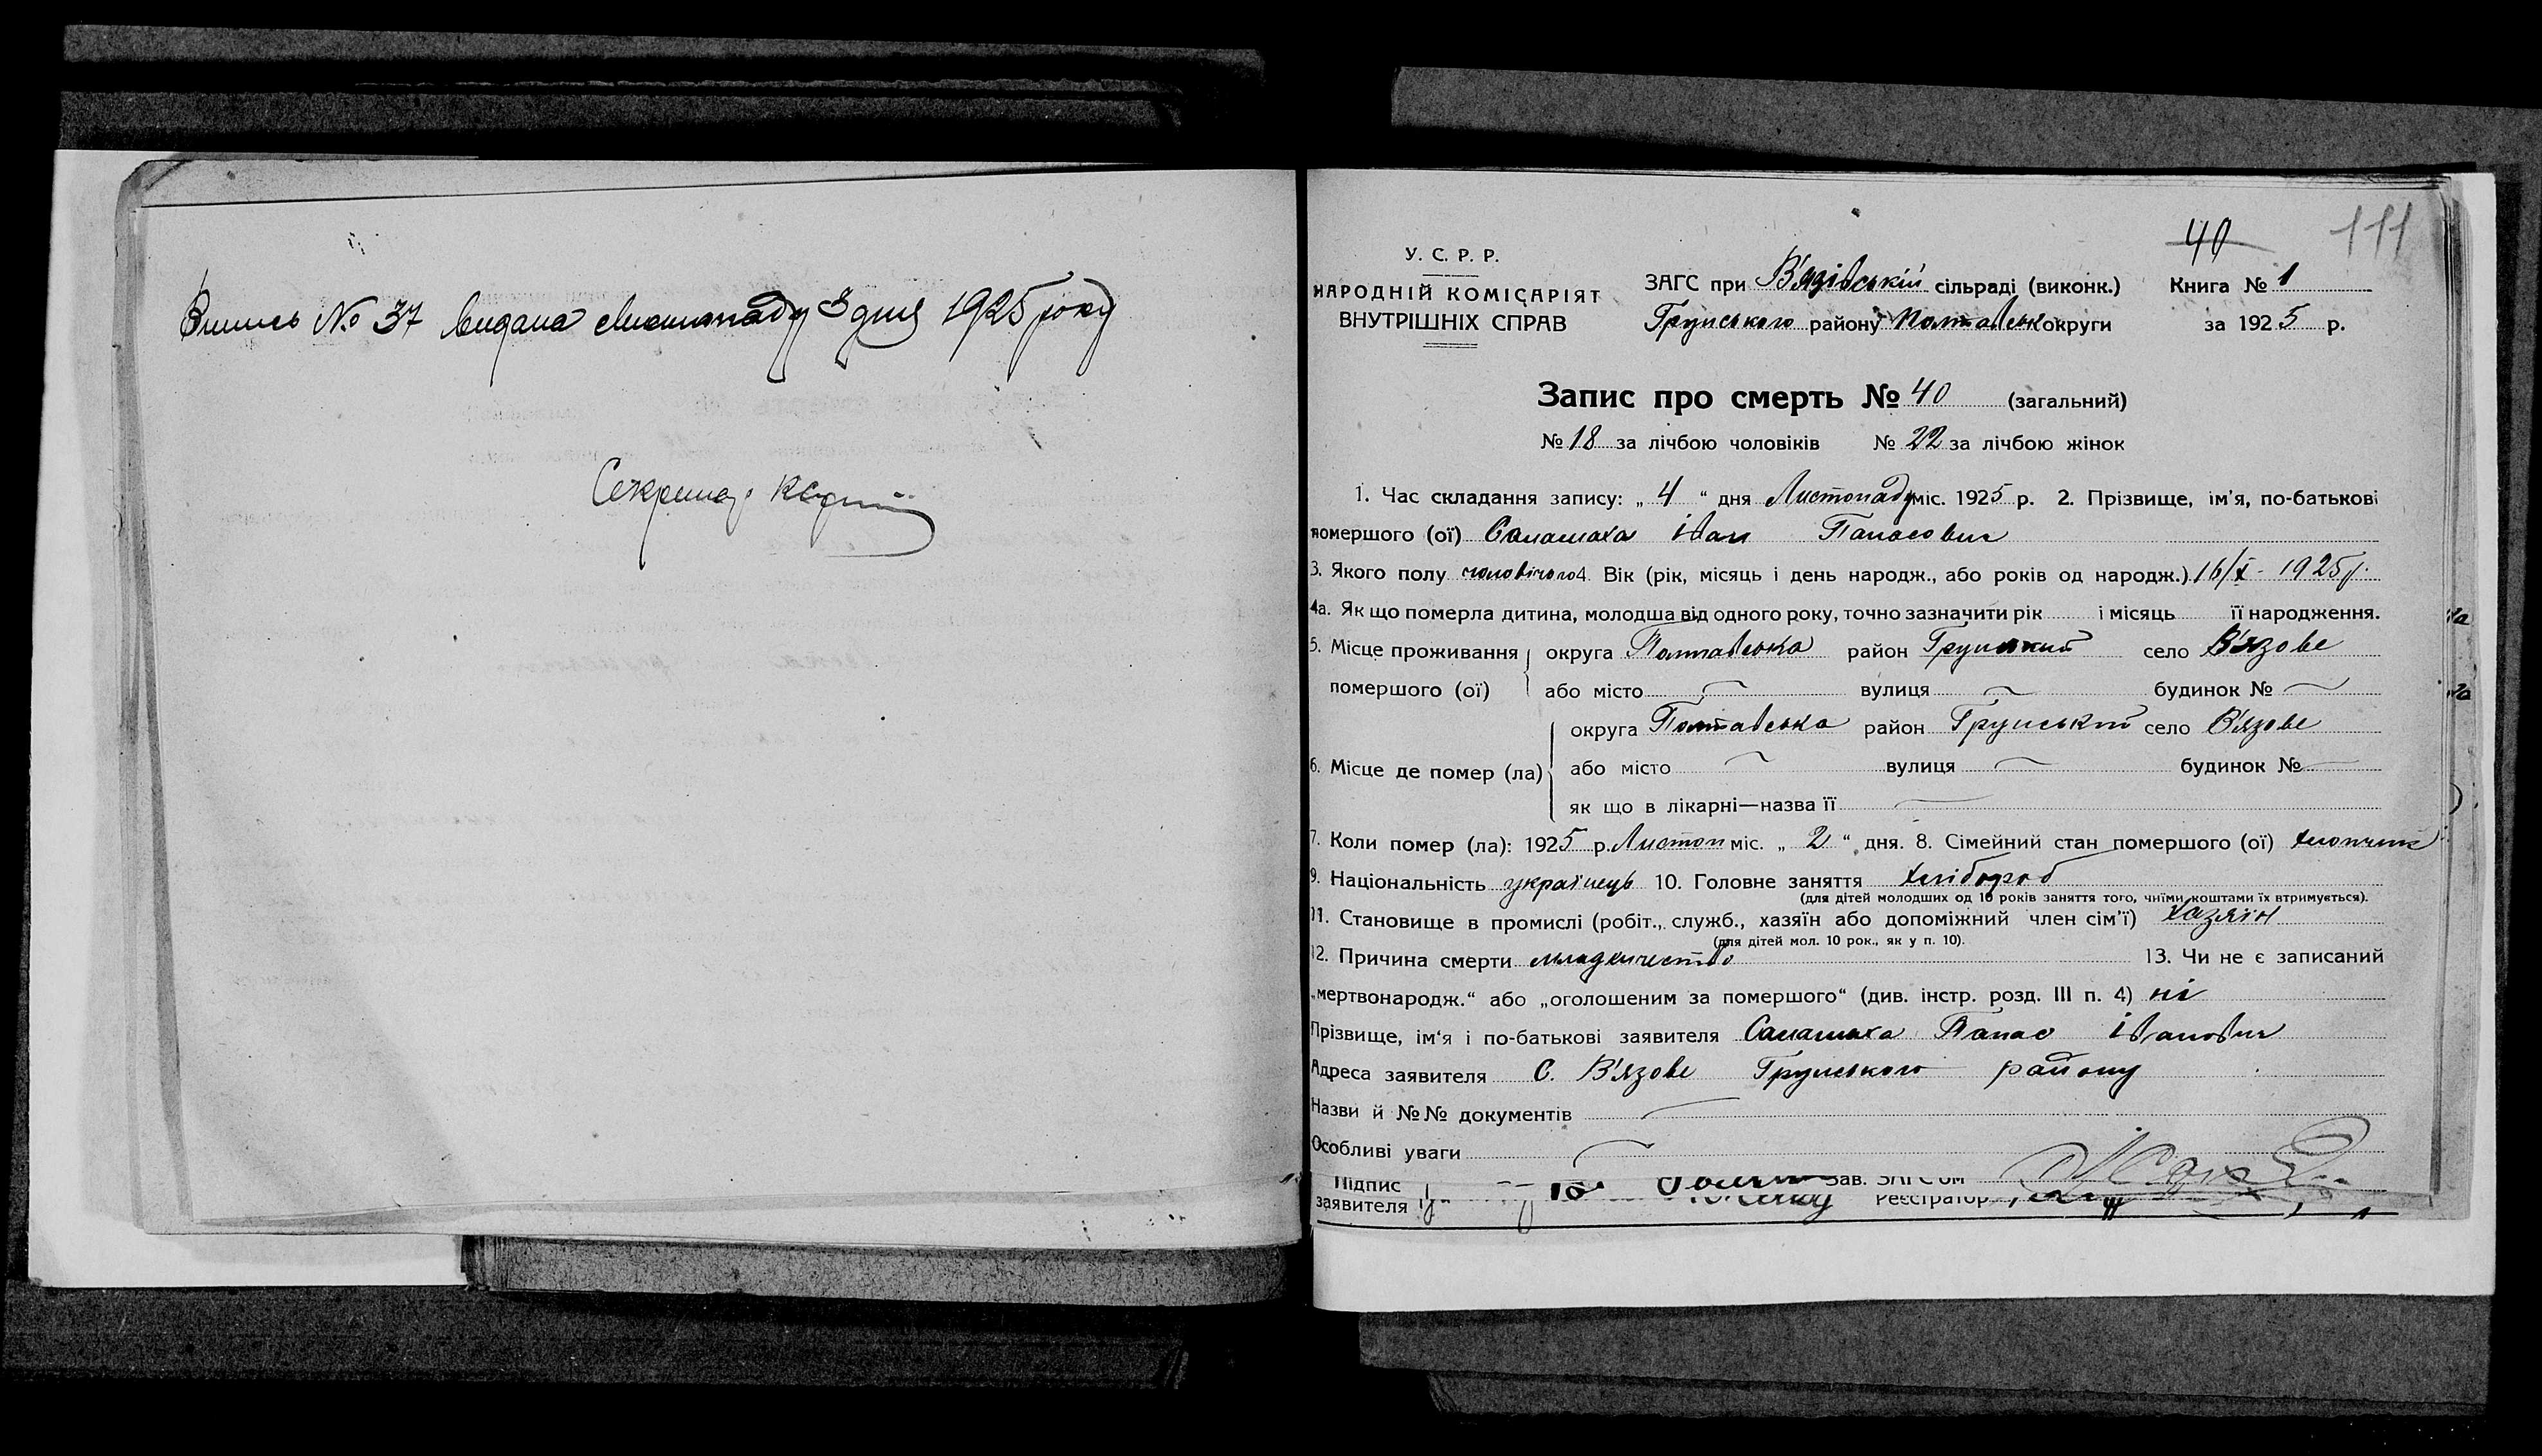 Випись № 37 видана Листопаду 3 дня 1925 року
Секретар
40
111
У. С. Р. Р.
НАРОДНІЙ КОМІСАРІЯТ
ВНУТРІШНІХ СПРАВ
ЗАГС при В'язівській сільраді (виконк.) Книга № 1
Грунського району Полтавськ округи за 1925 р.
Запис про смерть № 40 (загальний)
№ 18 за лічбою чоловіків № 22 за лічбою жінок
1. Час складання запису: „ 4 “ дня Листопаду міс. 1925 р. 2. Прізвище, ім'я, по-батькові
помершого (ої) Саламаха Іван Панасович
3. Якого полу чоловічого 4. Вік (рік, місяць і день народж., або років од народж.) 16/X - 1925 р.
4а. Як що померла дитина, молодша від одного року, точно зазначити рік і місяць її народження.
5. Місце проживання округа Полтавська район Грунський село В'язове
помершого (ої) або місто — вулиця — будинок № —
округа Полтавська район Грунський село В'язове
6. Місце де помер (ла) або місто — вулиця — будинок № —
як що в лікарні—назва її —
7. Коли помер (ла): 1925 р. Листоп міс. „ 2 “ дня. 8. Сімейний стан помершого (ої) хлопчик
9. Національність українець 10. Головне заняття хлібороб
(для дітей молодших од 16 років заняття того, чиїми коштами їх втримується).
11. Становище в промислі (робіт., служб., хазяїн або допоміжний член сім'ї) хазяїн
(для дітей мол. 10 рок., як у п. 10).
12. Причина смерти младенчество 13. Чи не є записаний
„мертвонародж.“ або „оголошеним за помершого“ (див. інстр. розд. III п. 4) ні
Прізвище, ім'я і по-батькові заявителя Саламаха Панас Іванович
Адреса заявителя С. В'язове Грунського району
Назви й №№ документів —
Особливі уваги —
Підпис Зав. ЗАГС'ом
заявителя Реєстратор